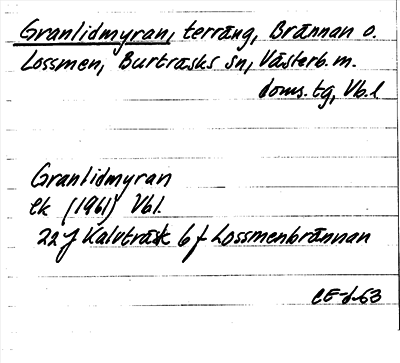 Granlidmyran, terräng, Brännan o.
Lossmen, Burträsks sn, Västerb.m.
doms.tg, Vb.l
Granlidmyran
ek (1961) Vbl.
22 J Kalvträsk 6 f Lossmenbrännan
CE-d-63